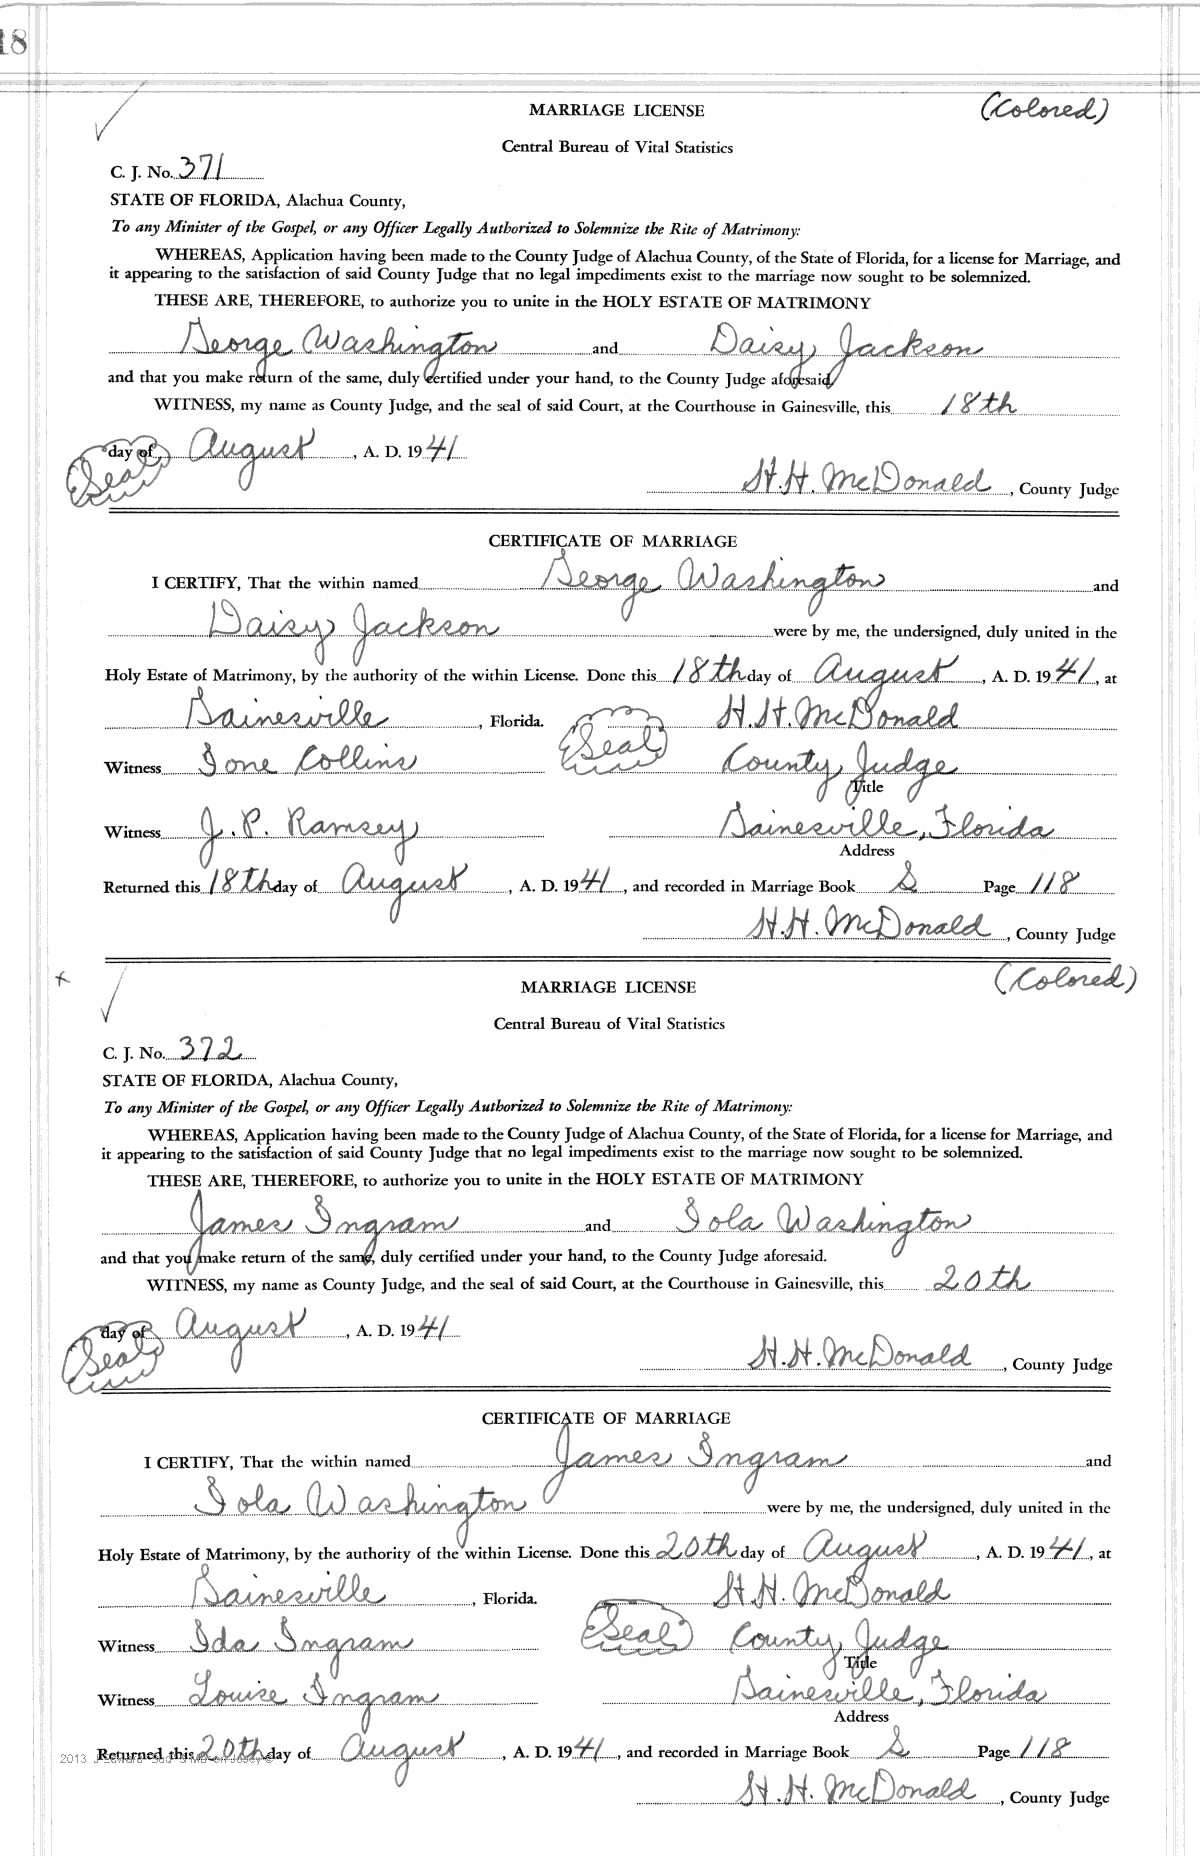 18
MARRIAGE LICENSE (Colored)
Central Bureau of Vital Statistics
C. J. No. 371
STATE OF FLORIDA, Alachua County,
To any Minister of the Gospel, or any Officer Legally Authorized to Solemnize the Rite of Matrimony:
WHEREAS, Application having been made to the County Judge of Alachua County, of the State of Florida, for a license for Marriage, and
it appearing to the satisfaction of said County Judge that no legal impediments exist to the marriage now sought to be solemnized.
THESE ARE, THEREFORE, to authorize you to unite in the HOLY ESTATE OF MATRIMONY
George Washington and Daisy Jackson
and that you make return of the same, duly certified under your hand, to the County Judge aforesaid
WITNESS, my name as County Judge, and the seal of said Court, at the Courthouse in Gainesville, this 18th
day of August, A. D. 1941
(Seal) H. H. McDonald, County Judge
CERTIFICATE OF MARRIAGE
I CERTIFY, That the within named George Washington and
Daisy Jackson were by me, the undersigned, duly united in the
Holy Estate of Matrimony, by the authority of the within License. Done this 18th day of August, A. D. 1941, at
Gainesville, Florida. H. H. McDonald
(Seal)
Witness Ione Collins County Judge
Title
Witness J. P. Ramsey Gainesville, Florida
Address
Returned this 18th day of August, A. D. 1941, and recorded in Marriage Book S Page 118
H. H. McDonald, County Judge
x
MARRIAGE LICENSE (Colored)
Central Bureau of Vital Statistics
C. J. No. 372
STATE OF FLORIDA, Alachua County,
To any Minister of the Gospel, or any Officer Legally Authorized to Solemnize the Rite of Matrimony:
WHEREAS, Application having been made to the County Judge of Alachua County, of the State of Florida, for a license for Marriage, and
it appearing to the satisfaction of said County Judge that no legal impediments exist to the marriage now sought to be solemnized.
THESE ARE, THEREFORE, to authorize you to unite in the HOLY ESTATE OF MATRIMONY
James Ingram and Iola Washington
and that you make return of the same, duly certified under your hand, to the County Judge aforesaid.
WITNESS, my name as County Judge, and the seal of said Court, at the Courthouse in Gainesville, this 20th
day of August, A. D. 1941
(Seal) H. H. McDonald, County Judge
CERTIFICATE OF MARRIAGE
I CERTIFY, That the within named James Ingram and
Iola Washington were by me, the undersigned, duly united in the
Holy Estate of Matrimony, by the authority of the within License. Done this 20th day of August, A. D. 1941, at
Gainesville, Florida. H. H. McDonald
(Seal)
Witness Ida Ingram County Judge
Title
Witness Louise Ingram Gainesville, Florida
Address
2013
Returned this 20th day of August, A. D. 1941, and recorded in Marriage Book S Page 118
H. H. McDonald, County Judge